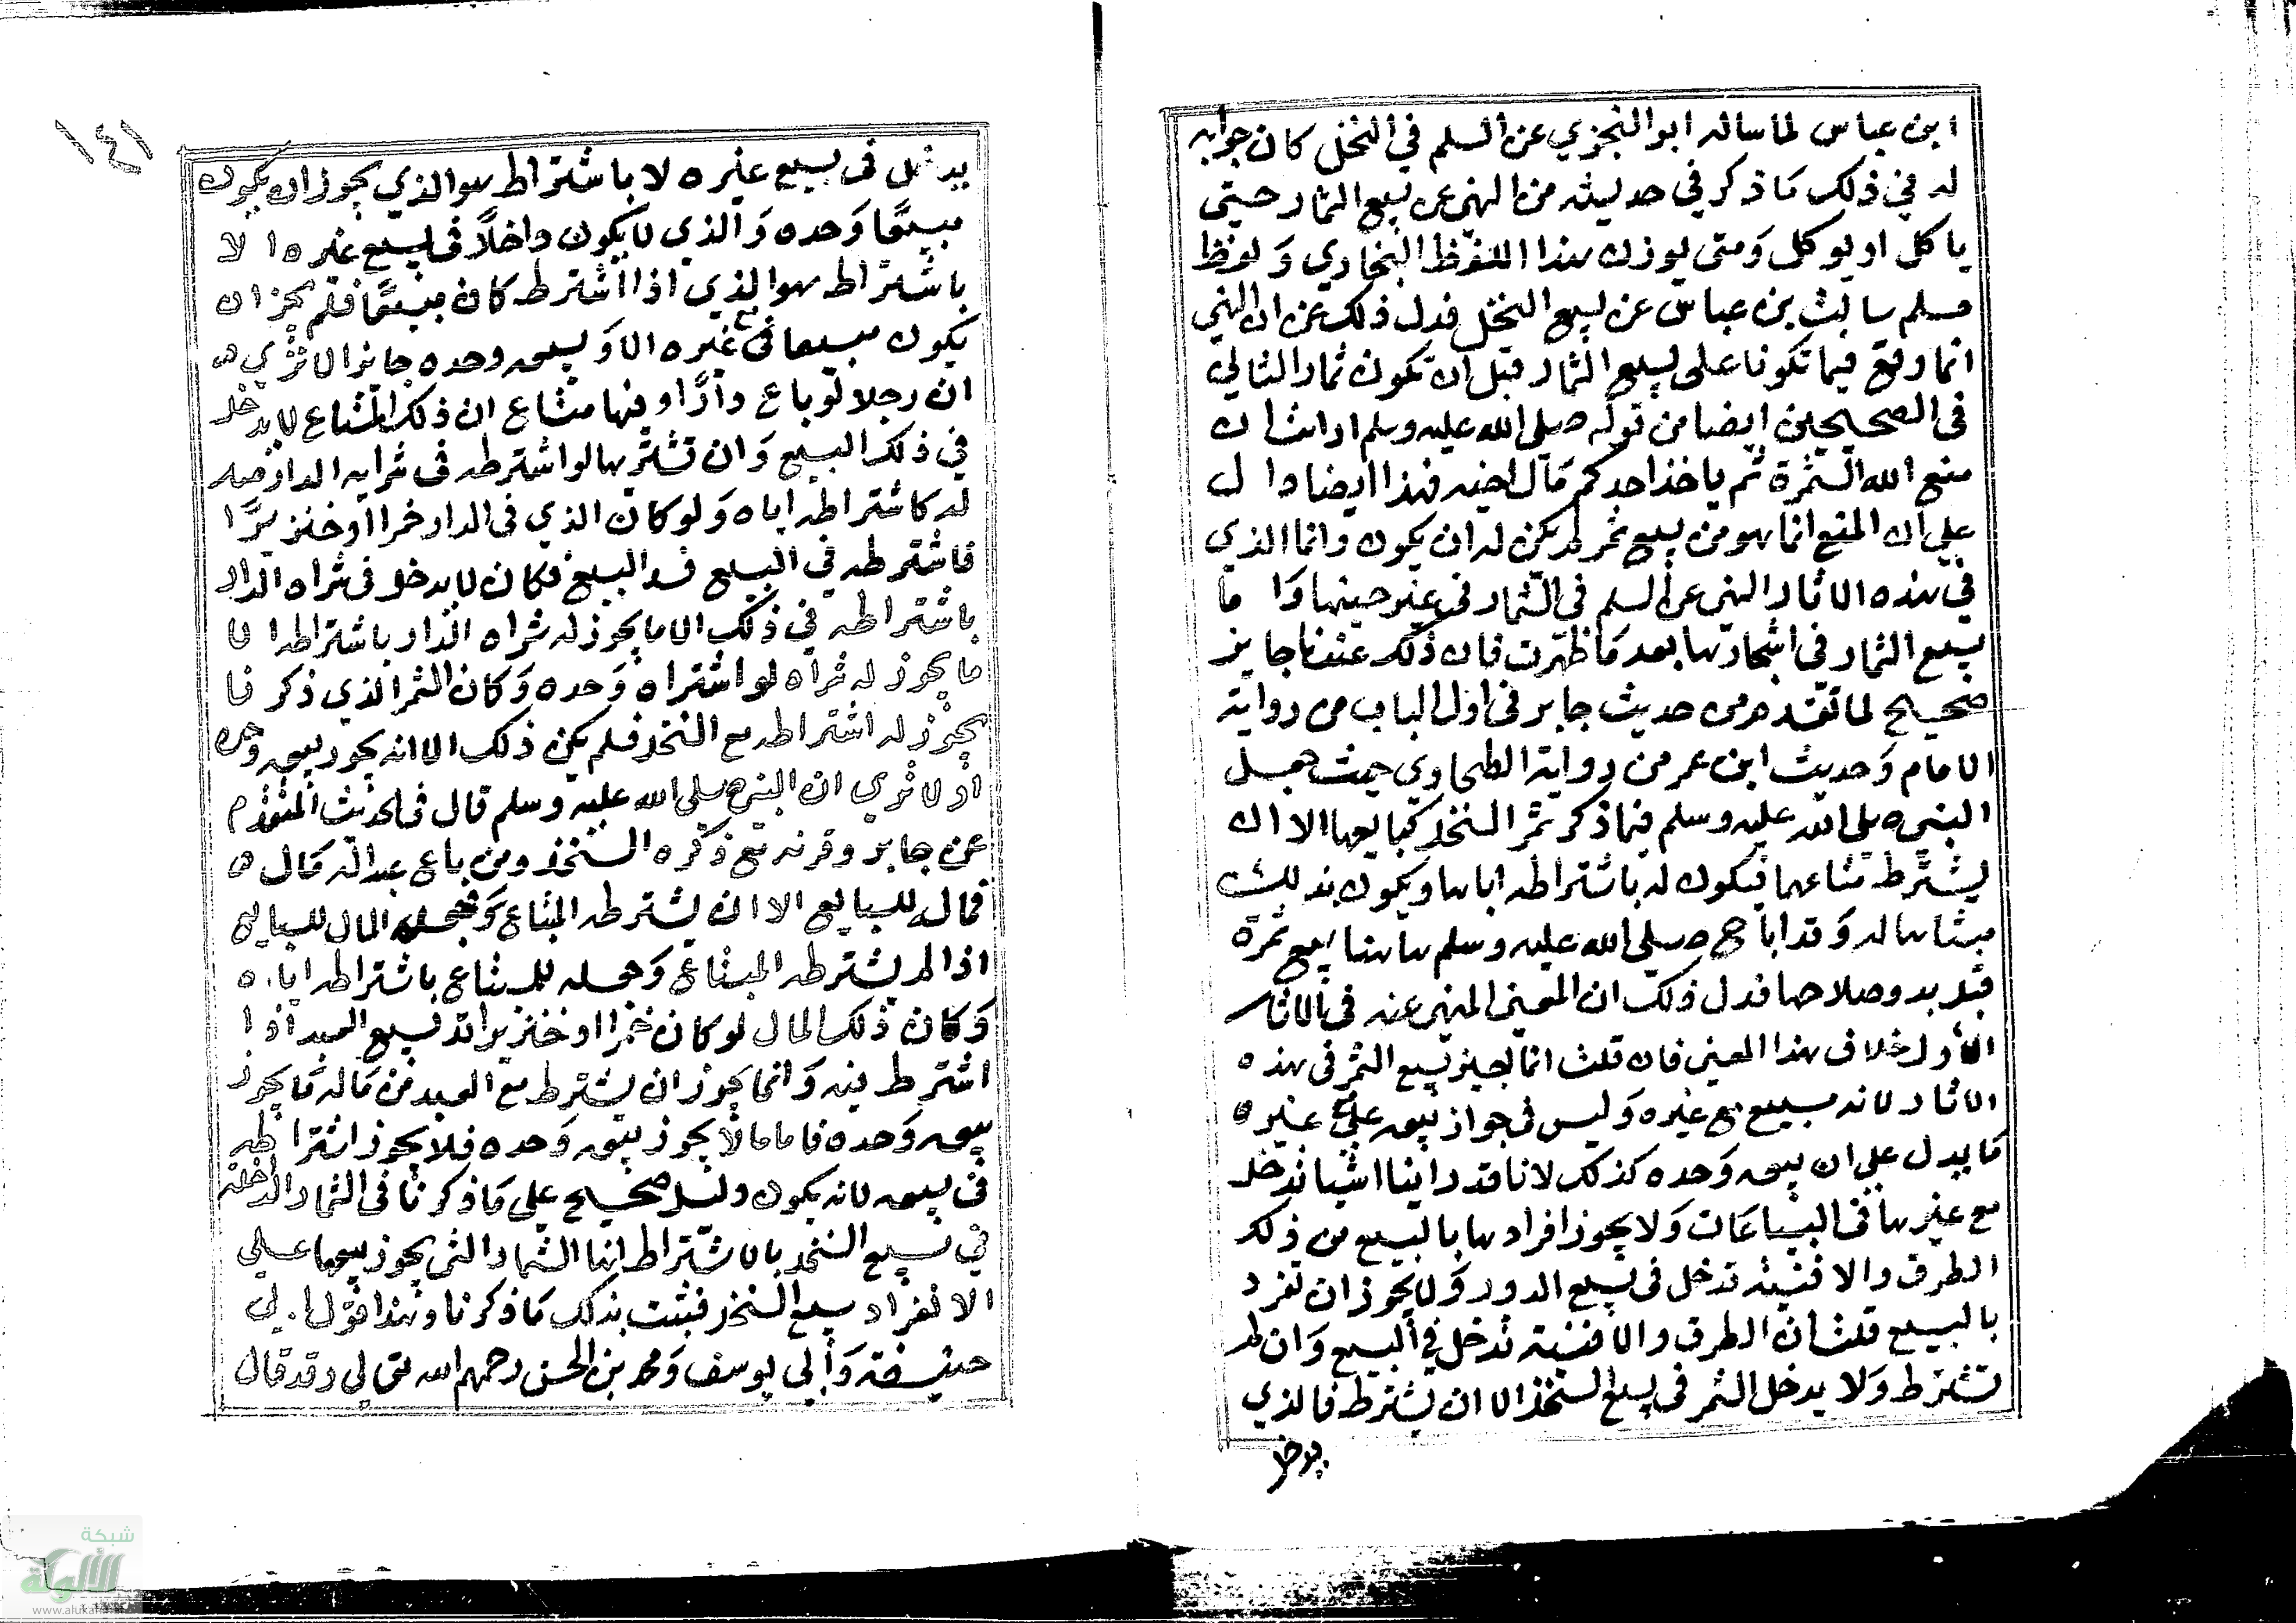 ابن عباس لما ساله ابو البختري عن السلم في النخل كان جوابه
له في ذلك ما ذكر في حديثه من النهي عن بيع الثمار حتى
ياكل او يوكل ومتى يوزن هذا اللفظ البخاري ولفظ
مسلم سالت بن عباس عن بيع النخل فدل ذلك عن ان النهي
انما وقع فيما تكونا على بيع الثمار قبل ان تكون ثمار الثاني
في الصحيحين ايضا من قوله صلى الله عليه وسلم ارايت ان
منع الله الثمرة ثم ياخذ احدكم مال اخيه فهذا ايضا دال
على ان المنع انما هو من بيع ثمر لم يكن له ان يكون وانما الذي
في هذه الاثار النهي عن السلم في الثمار في غير حينها واما
بيع الثمار في اشجارها بعد ما ظهرت فان ذلك عندنا جايز
صحيح لما تقدم من حديث جابر في اول الباب من رواية
الامام وحديث ابن عمر من رواية الطحاوي حيث جعل
النبي صلى الله عليه وسلم فيما ذكر ثمر النخل لبايعها الا ان
يشترط مبتاعها فيكون له باشتراطه اياها ويكون بذلك
مبتاعا له وقد اباح صلى الله عليه وسلم هاهنا بيع ثمرة
قبل بدو صلاحها فدل ذلك ان المعنى المنهي عنه في الاثار
الأول خلاف هذا المعنى فان قلت انما يجيز بيع الثمر في هذه
الاثار لانه مبيع مع غيره وليس في جواز بيعه على غيره
ما يدل على ان بيعه وحده كذلك لانا قد راينا اشيا تدخل
مع غيرها في البياعات ولا يجوز افرادها بالبيع من ذلك
الطرق والافنية تدخل في بيع الدور ولا يجوز ان تفرد
بالبيع قلت ان الطرق والافنية تدخل في البيع وان لم
تشترط ولا يدخل الثمر في بيع النخل الا ان يشترط فالذي
يدخل
١٤١
يدخل في بيع غيره لا باشتراط هو الذي يجوز ان يكون
مبيعا وحده والذي لا يكون داخلا في بيع غيره الا
باشتراط هو الذي اذا اشترط كان مبيعا فلم يجز ان
يكون مبيعا مع غيره الا وبيعه وحده جائز الا ترى
ان رجلا لو باع دارا وفيها متاع ان ذلك المتاع لا يدخل
في ذلك البيع وان مشتريها لو اشترطه في شرايه الدار صار
له كاشتراطه اياه ولو كان الذي في الدار خمرا او خنزيرا
فاشترطه في البيع فسد البيع فكان لا يدخل في شراه الدار
باشتراطه في ذلك الا ما يجوز له شراه الدار باشتراطه الا
ما يجوز له شراه لو اشتراه وحده وكان الثمر الذي ذكرنا
يجوز له اشتراطه مع النخل فلم يكن ذلك الا انه يجوز بيعه وحده
او لا ترى ان النبي صلى الله عليه وسلم قال في الحديث المتقدم
عن جابر وقرنه مع ذكره النخل ومن باع عبدا له مال
فماله للبايع الا ان يشترطه المبتاع فجعل المال للبايع
اذا لم يشترطه المبتاع وجعله للمبتاع باشتراطه اياه
وكان ذلك المال لو كان خمرا او خنزيرا فسد بيع العبد اذا
اشترط فيه وانما يجوز ان يشترط مع العبد من ماله ما يجوز
بيعه وحده فاما ما لا يجوز بيعه وحده فلا يجوز اشتراطه
في بيعه لانه يكون دليل صحيح على ما ذكرنا في الثمار الداخلة
في بيع النخل بالاشتراط انها الثمار التي يجوز بيعها على
الانفراد بيع النخل فثبت بذلك ما ذكرنا وهذا قول ابي
حنيفة وأبي يوسف ومحمد بن الحسن رحمهم الله تعالى وقد قال
شبكة
الألوكة
www.alukah.net